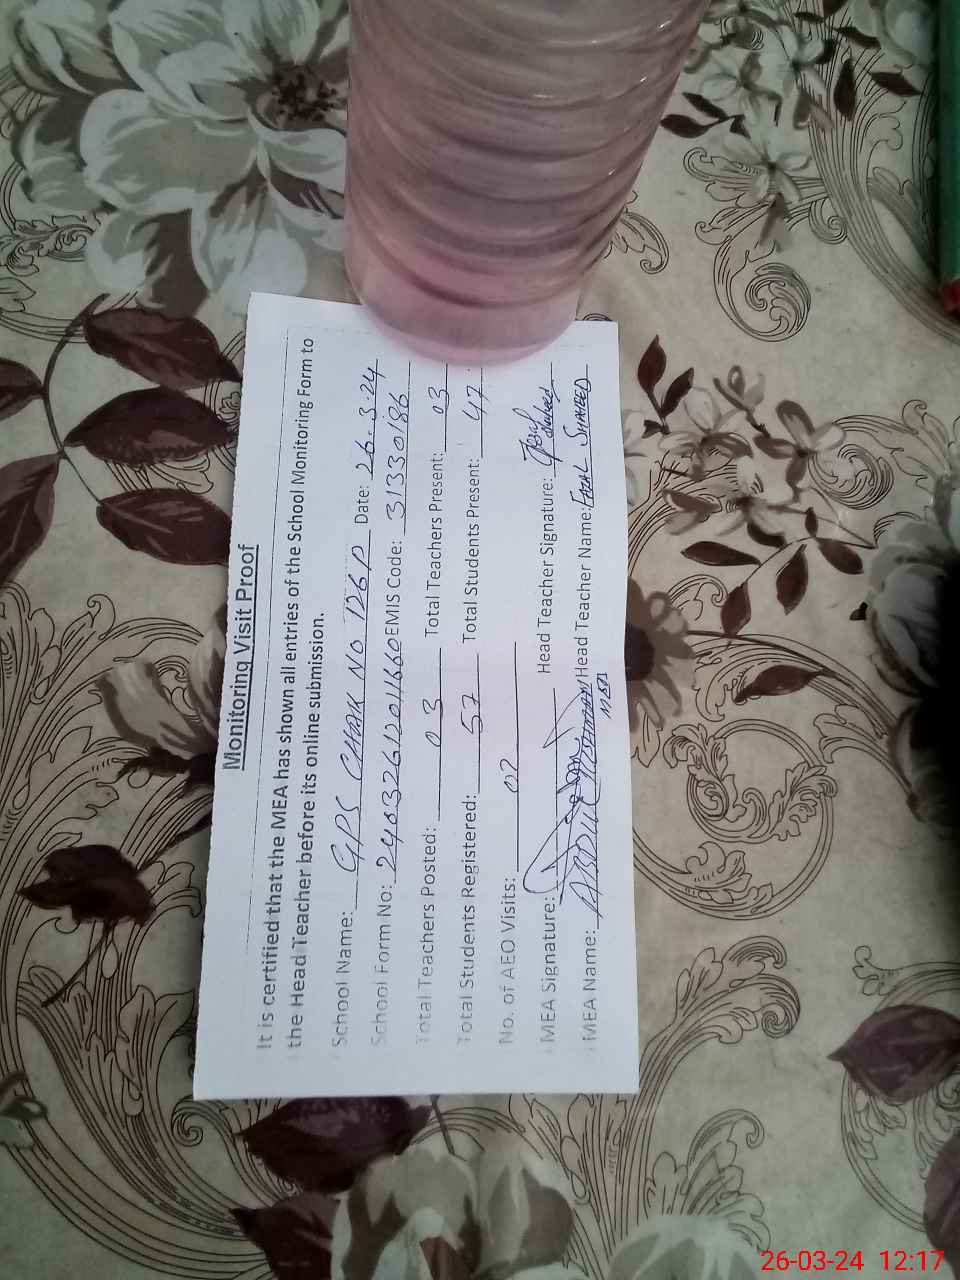 Monitoring Visit Proof
It is certified that the MEA has shown all entries of the School Monitoring Form to
the Head Teacher before its online submission.
School Name: GPS CHAK NO 126P Date: 26.3.24
School Form No: 2403261201660 EMIS Code: 31330186
Total Teachers Posted: 03 Total Teachers Present: 03
Total Students Registered: 57 Total Students Present: 47
No. of AEO Visits: 02
MEA Signature: Head Teacher Signature:
MEA Name: ABDUL Head Teacher Name: FAZAL SHAHEED
26-03-24 12:17